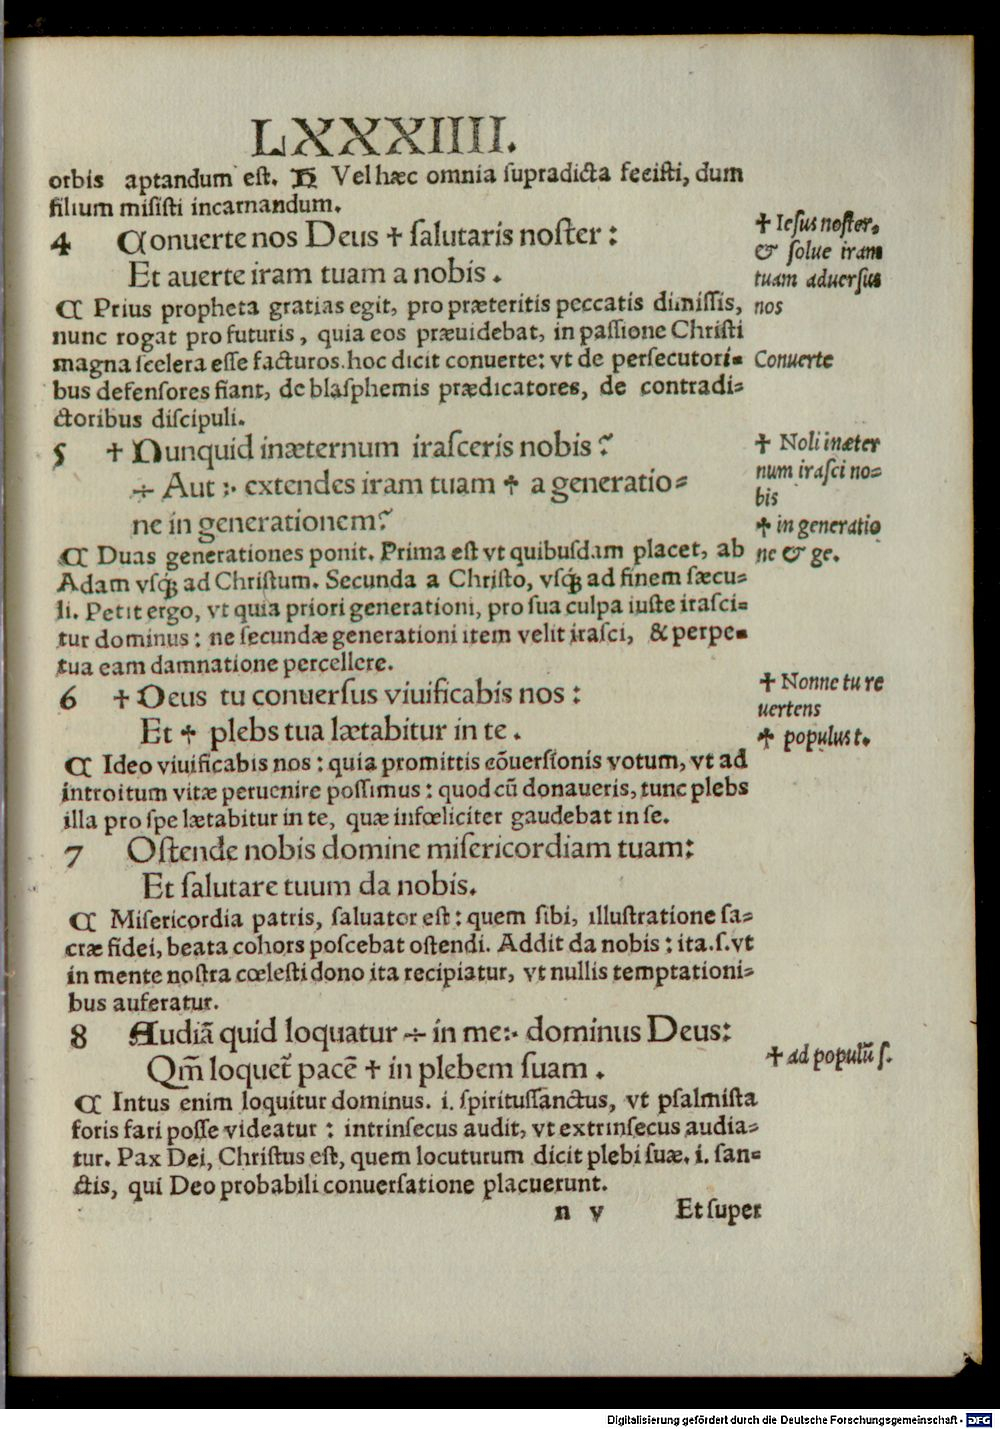 LXXXIIII.
orbis aptandum est. H Vel hæc omnia supradicta fecisti, dum
filium misisti incarnandum.
4 Conuerte nos Deus ✝ salutaris noster :
✝ Iesus noster.
Et auerte iram tuam a nobis .
& solue iram
tuam aduersus
nos
¶ Prius propheta gratias egit, pro præteritis peccatis dimissis,
nunc rogat pro futuris, quia eos præuidebat, in passione Christi
magna scelera esse facturos. hoc dicit conuerte: vt de persecutori-
Conuerte
bus defensores fiant, de blasphemis prædicatores, de contradi-
ctoribus discipuli.
5 ✝ Nunquid inæternum irasceris nobis ?
✝ Noli inæter
num irasci no-
bis
÷ Aut :· extendes iram tuam ✝ a generatio-
ne in generationem?
✝ in generatio
ne & ge.
¶ Duas generationes ponit. Prima est vt quibusdam placet, ab
Adam vsq; ad Christum. Secunda a Christo, vsq; ad finem sæcu-
li. Petit ergo, vt quia priori generationi, pro sua culpa iuste irasci-
tur dominus: ne secundæ generationi item velit irasci, & perpe-
tua eam damnatione percellere.
6 ✝ Deus tu conuersus viuificabis nos :
✝ Nonne tu re
uertens
Et ✝ plebs tua lætabitur in te .
✝ populus t.
¶ Ideo viuificabis nos : quia promittis cõuersionis votum, vt ad
introitum vitæ peruenire possimus : quod cũ donaueris, tunc plebs
illa pro spe lætabitur in te, quæ infœliciter gaudebat in se.
7 Ostende nobis domine misericordiam tuam:
Et salutare tuum da nobis.
¶ Misericordia patris, saluator est : quem sibi, illustratione sa-
cræ fidei, beata cohors poscebat ostendi. Addit da nobis : ita .s. vt
in mente nostra cœlesti dono ita recipiatur, vt nullis temptationi-
bus auferatur.
8 Audiã quid loquatur ÷ in me:· dominus Deus:
Qm̃ loquet̃ pacẽ ✝ in plebem suam .
✝ ad populũ s.
¶ Intus enim loquitur dominus. i. spiritussanctus, vt psalmista
foris fari posse videatur : intrinsecus audit, vt extrinsecus audia-
tur. Pax Dei, Christus est, quem locuturum dicit plebi suæ. i. san-
ctis, qui Deo probabili conuersatione placuerunt.
n v Et super
Digitalisierung gefördert durch die Deutsche Forschungsgemeinschaft - DFG